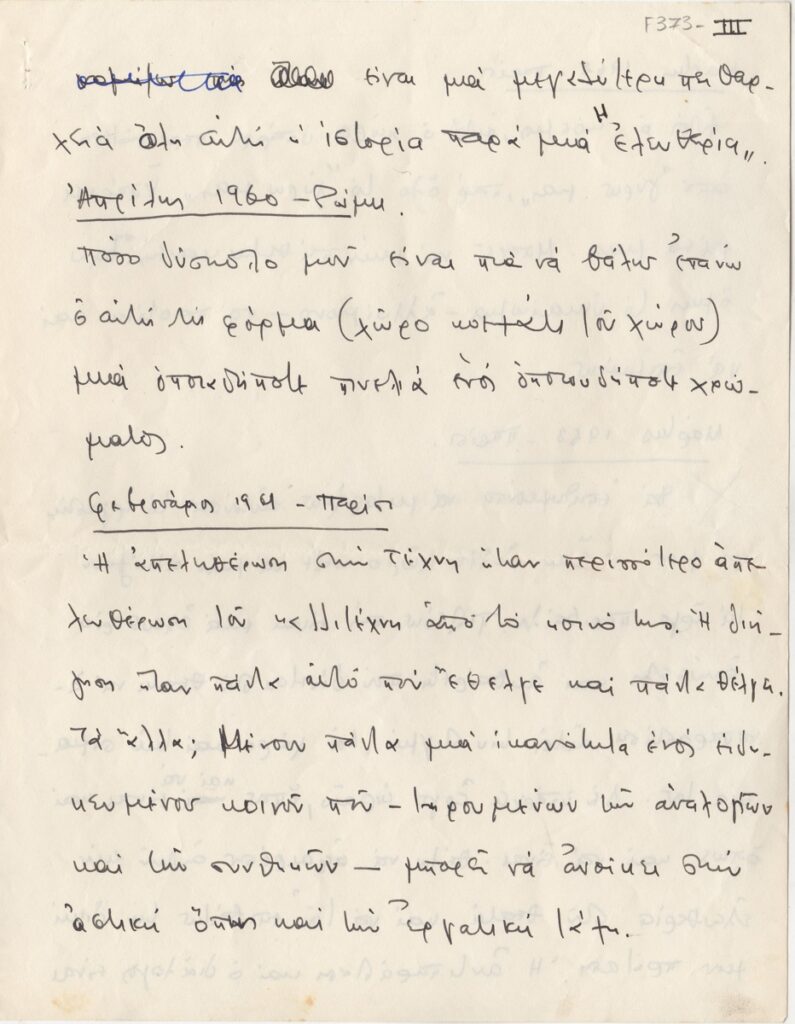 F373-III
εἶναι μιά μεγαλύτερη πειθαρ-
χεία ὅλη αὐτή ἡ ἱστορία παρά μιά "ἐλευθερία".
Ἀπρίλης 1960 - Ρώμη.
Πόσο δύσκολο μοῦ εἶναι πιά νά βάλω ἐπάνω
σ' αὐτή τή φόρμα (χῶρο κομμάτι τοῦ χώρου)
μιά ὁποιαδήποτε πινελιά ἑνός ὁποιουδήποτε χρώ-
ματος.
Φεβρουάριος 1961 - Παρίσι
Ἡ ἀπελευθέρωση στήν τέχνη ἦταν περισσότερο ἀπε-
λευθέρωση τοῦ καλλιτέχνη ἀπό τό κοινό του. Ἡ διή-
γηση ἦταν πάντα αὐτό πού ἔθελγε καί πάντα θέλγει.
Τά ἄλλα; Μένουν πάντα μιά ἱκανότητα ἑνός εἰδι-
κευμένου κοινοῦ πού - τηρουμένων τῶν ἀναλογιῶν
καί τῶν συνθηκῶν - μπορεῖ νά ἀνοίκει στήν
ἀστική ὅπως καί τήν ἐργατική τάξη.